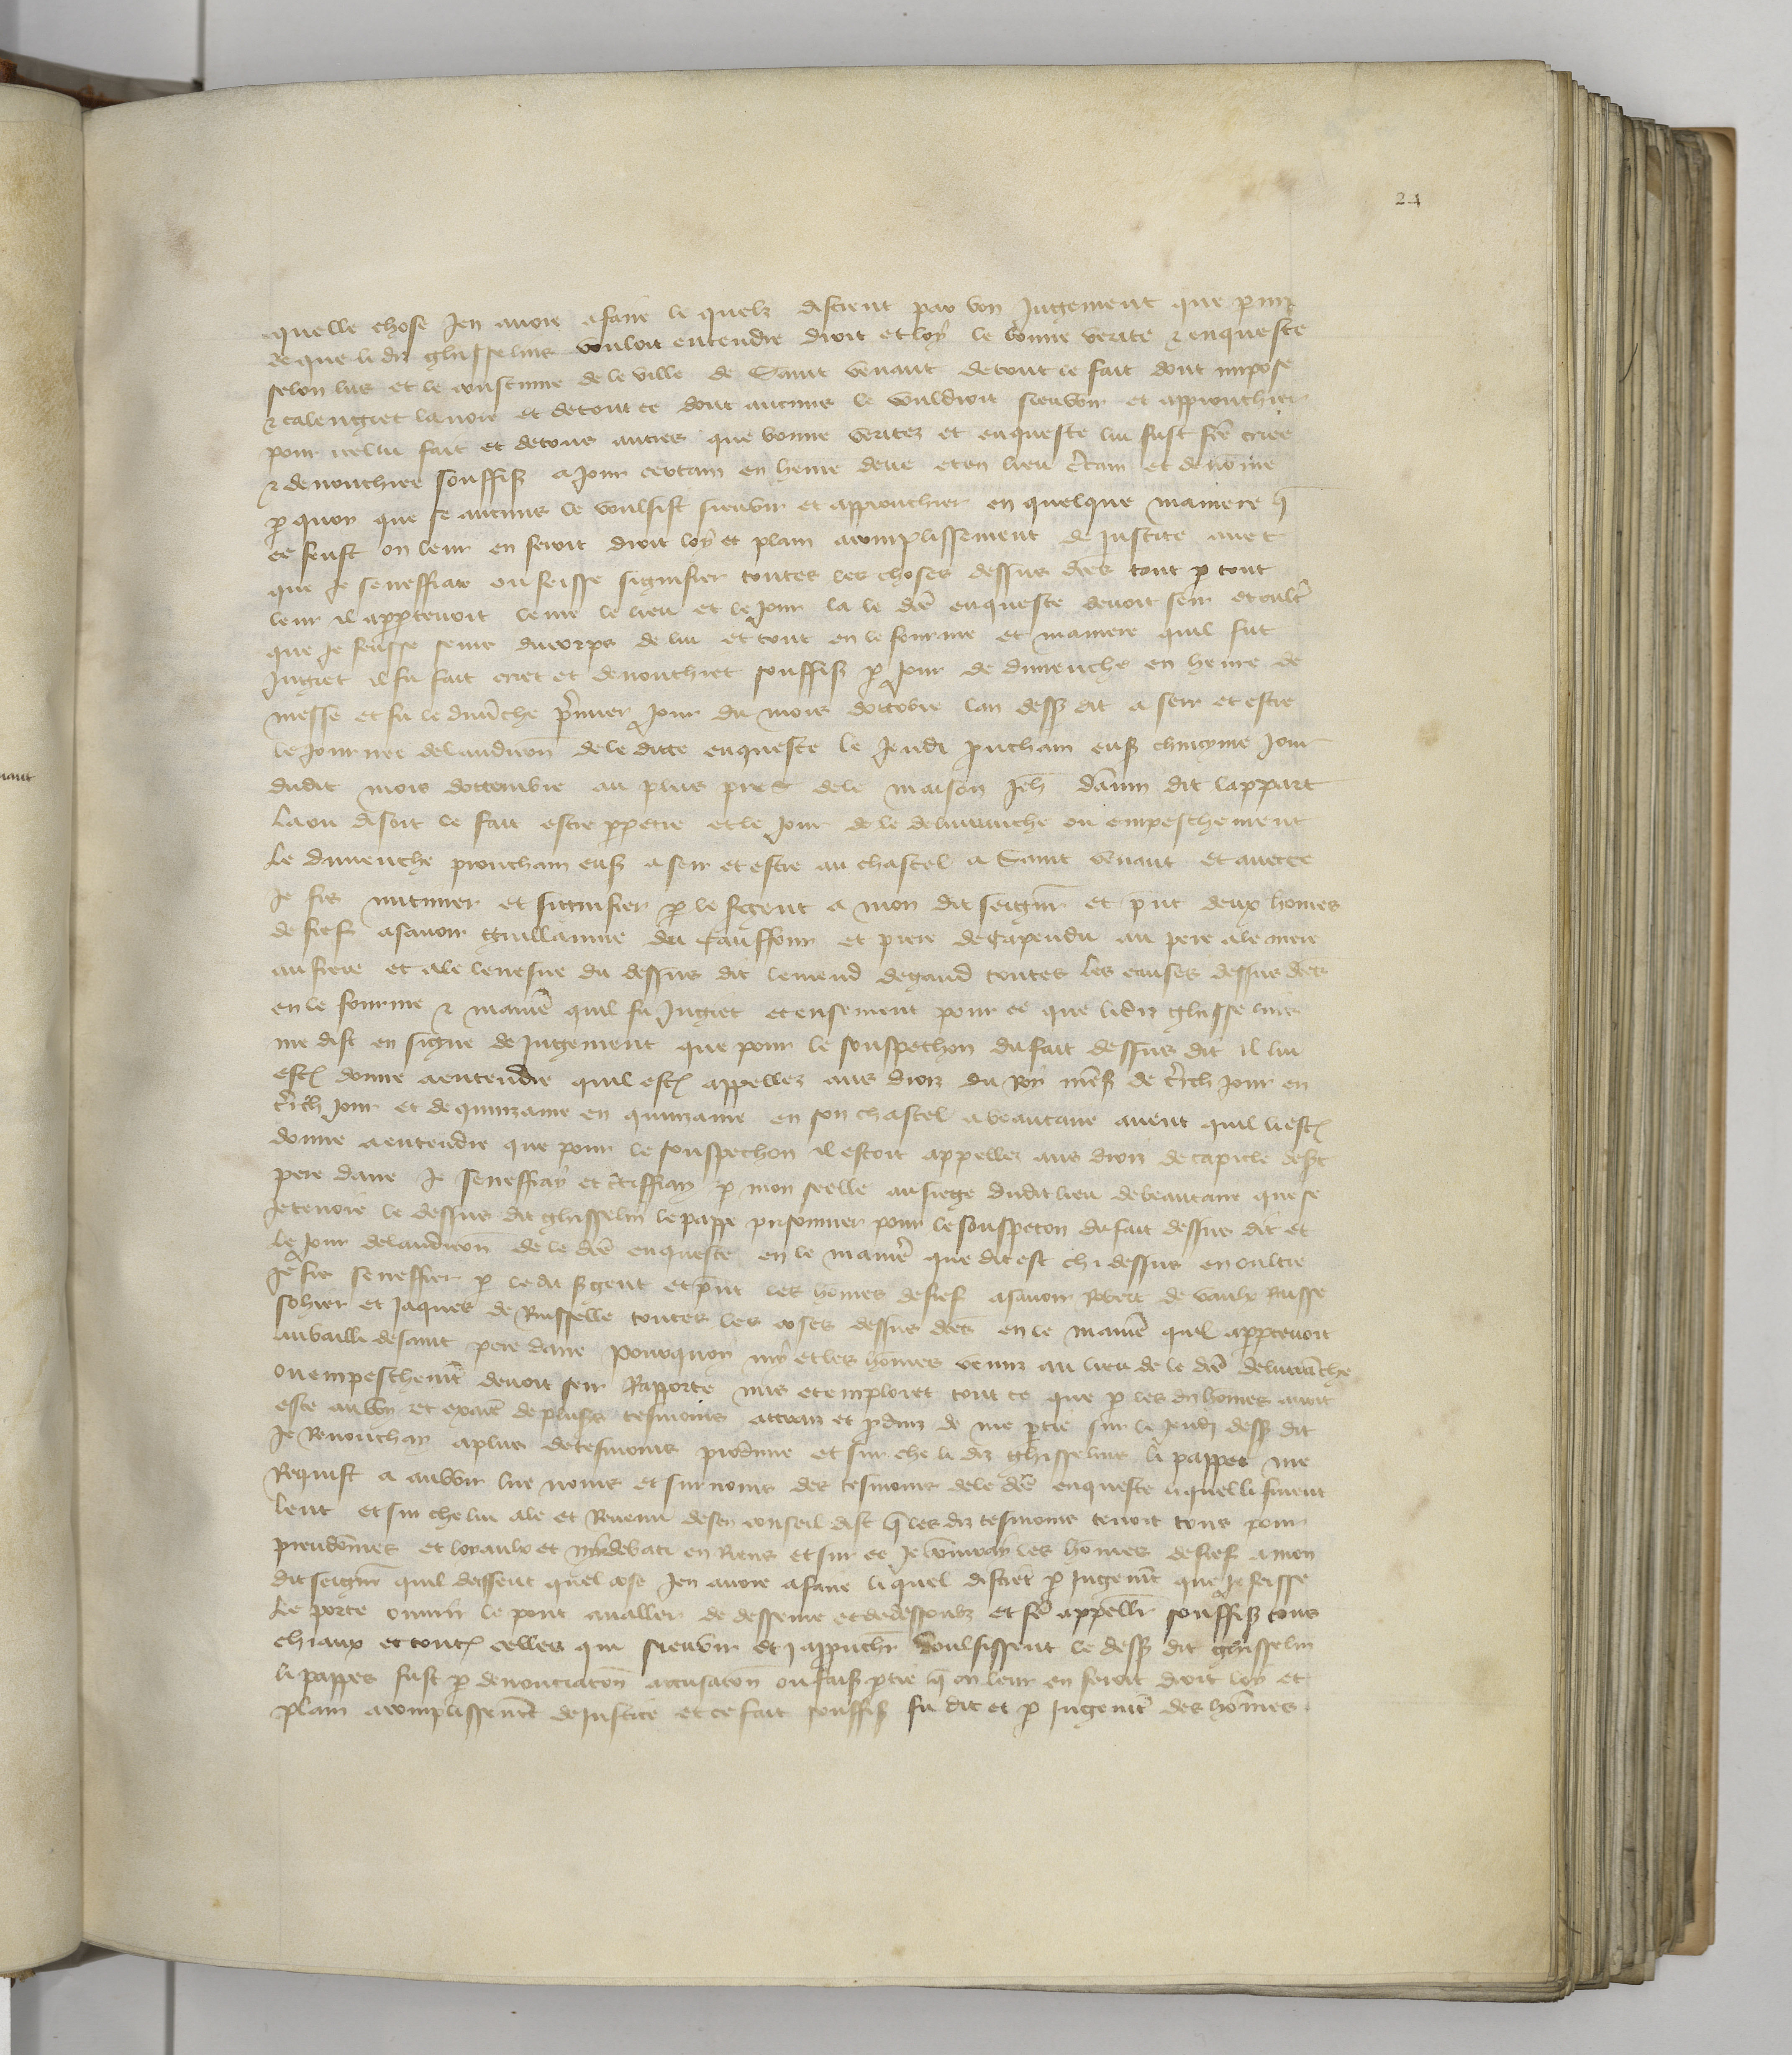 24
quelle chose Jen avoie afaire le quelz disrent par von Jugement que p mi
ce que li dis ghisselins vouloit entendre droit et loy le bonne verite & enqueste
selon lus et le coustume de le ville de Saint venant de tout le fait dont impose
& calengiet lavoie et de tout ce dont aucuns le vuldroit sieuvir et approuchier
pour cellui fait et de tous autres que bonne veritez et enqueste lui fust fce criee
& denonchiee souffiss a Jour certain en heure deue et en lieu ctain et denome
p quoy que se aucuns le voulsist sieuvir et approuchier en quelque maniere q
ce feust on leur en feroit droit loy et plain acomplissement de Justice avec
que Je seneffiaie ou feisse signifier toutes les choses dessus des tout p tout
leur il appertenoit leure le lieu et le Jour la le dce enqueste devoit seir et oult
que Je feusse seure du corps de lui et tout en le fourme et maniere quil fut
Jugiet il fu fait criet et denonchiet souffiss p Jour de dimenche en heure de
messe et fu le dimenche pmier Jour du mois dottobre lan dess dit a seir et estre
le Journee de lauditon de le ditte enqueste le Jeudi pucham enss chincyme Jour
dudit mois dottembre au plus prez de le maison Jeh danin dit lappart
La ou disoit le fait estre ppetre et le Jour de le delivranche ou empeschement
Le dimenche prouchain enss a seir et estre au chastel a Saint venant et avecce
Je fis intimer et signifier p le sergent a mon dit seignr et pnt deux homes
de fief asavoir Guillaume du Caufour et piere de Capendu au pere a le mere
au frere et a le levesne du dessus dit lemend degand toutes les causes dessus des
en le fourme & manie quil fu Jugiet et ensement pour ce que li dis ghisselins
me dist en signe de Jugement que pour le souspechon du fait dessus dit il lui
est donne a entendre quil est appellez aus drois du Roy mess de tich Jour en
tich Jour et de quinzaine en quinzaine en son chastel a beauraine avent quil li est
donne a entendre que pour le souspechon il estoit appellez aus drois de capicle de st
pere dane Je seneffiay et certiffiay p mon seelle au siege dudit lieu de beauraine que se
Je tenoie le dessus dit ghisselin le pappe prisonnier pour le souspecon du fait dessus dit et
Le Jour de lauditon de le dce enqueste en le manie que dit est chi dessus en oultre
Je fis seneffier p le dit sgent et pnt les homes de fief asavoir Robert de vaulx Russe
sohier et Jaques de Russelle toutes les coses dessus des en le manie quil appertenoit
au bailli de saint pere dane Pourquoy my et les homes venuz au lieu de le dce delivranche
ou empeschemt devoit seir Rapporte mis et emploiet tout ce que p les dis homes avoit
este auvy et exaie de plusrs tesmoins attraiz et pduiz de me ptie sur le Jeudi dess dit
Je Renonchay a plus de tesmoins produire et sur che li diz ghisselins li pappes me
Requist a auvoir lue noms et surnoms des tesmoins de le dce enqueste liquel li furent
leut et sur che lui ale et Revenu de sen conseil dist q les diz tesmoins tenoit tous pour
preudomes et loyaulx et my debati en Riens et sur ce Je conjuray les homes de fief a mon
dit seignr quil deissent quel cose Jen avoie a faire li quel disrent p Jugemt que Je feisse
Le porte ouvrir le pont avaller de desseure et de dessoubz et fe appeller souffiss tous
chiaux et toutes celles qui sieuvir et appuchr voulsissent le dess dit ghisselin
li pappes fust p denonciaton accusaton ou faiss ptie q on leur en feroit droit loy et
plain acomplissemt de Justice et ce fait souffiss fu dit et p Jugemt des homes